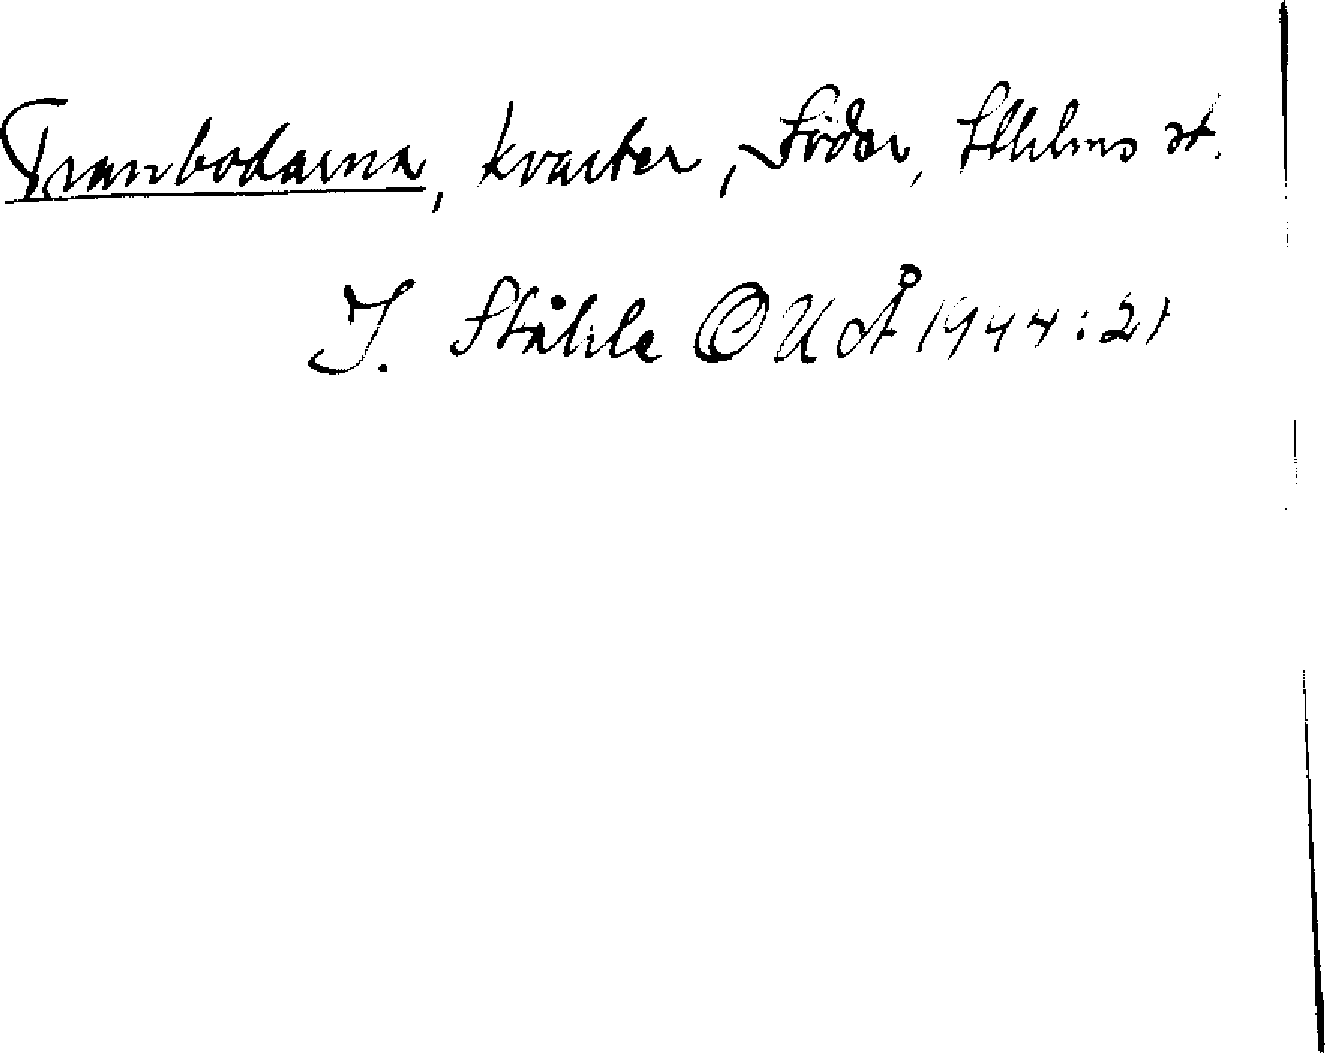 Tranbodarna, kvarter, Söder, Sthlms st.
I. Ståhle OUÅ 1944:21